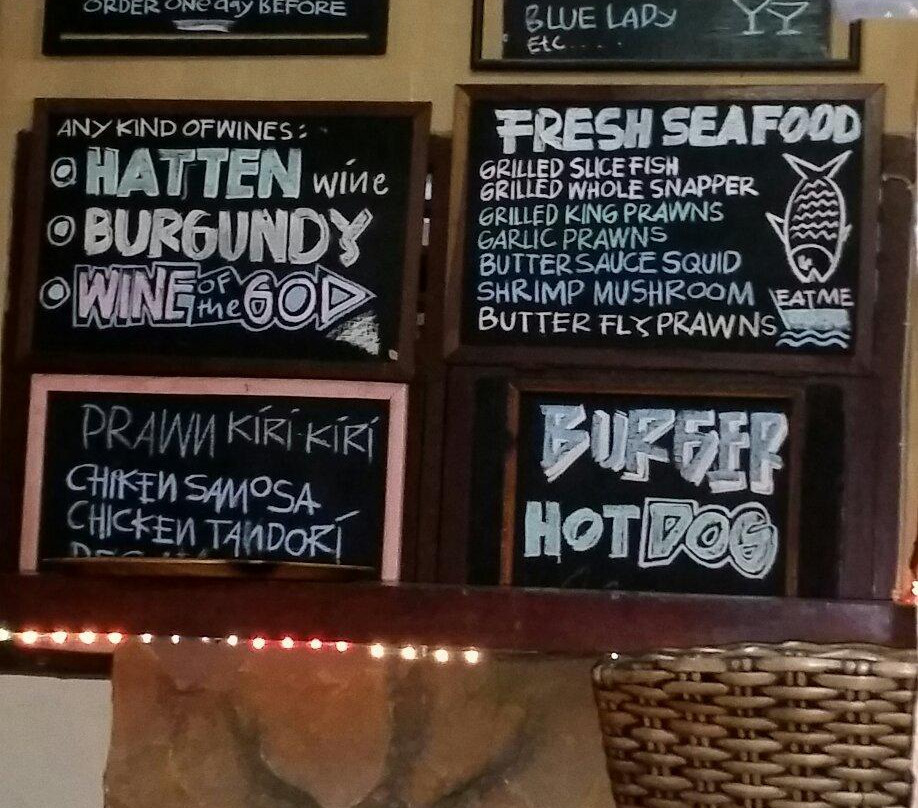 ORDER one day BEFORE
BLUE LADY
Etc.....
ANY KIND OF WINES:
HATTEN wine
BURGUNDY
WINE OF the GOD
FRESH SEAFOOD
GRILLED SLICE FISH
GRILLED WHOLE SNAPPER
GRILLED KING PRAWNS
GARLIC PRAWNS
BUTTER SAUCE SQUID
SHRIMP MUSHROOM
BUTTER FLY PRAWNS
EAT ME
PRAWN KIRI-KIRI
CHIKEN SAMOSA
CHICKEN TANDORI
BURGER
HOT DOG